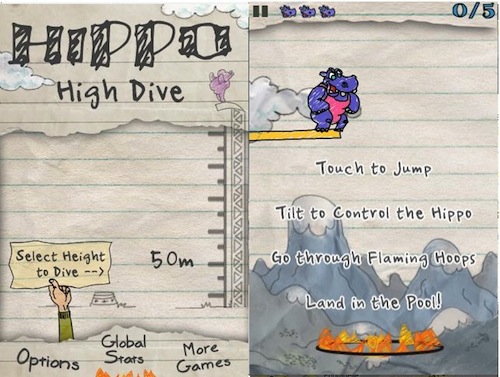 HIPPO
High Dive
Select Height
to Dive -->
50m
Options
Global
Stats
More
Games
0/5
Touch to Jump
Tilt to Control the Hippo
Go through Flaming Hoops
Land in the Pool!